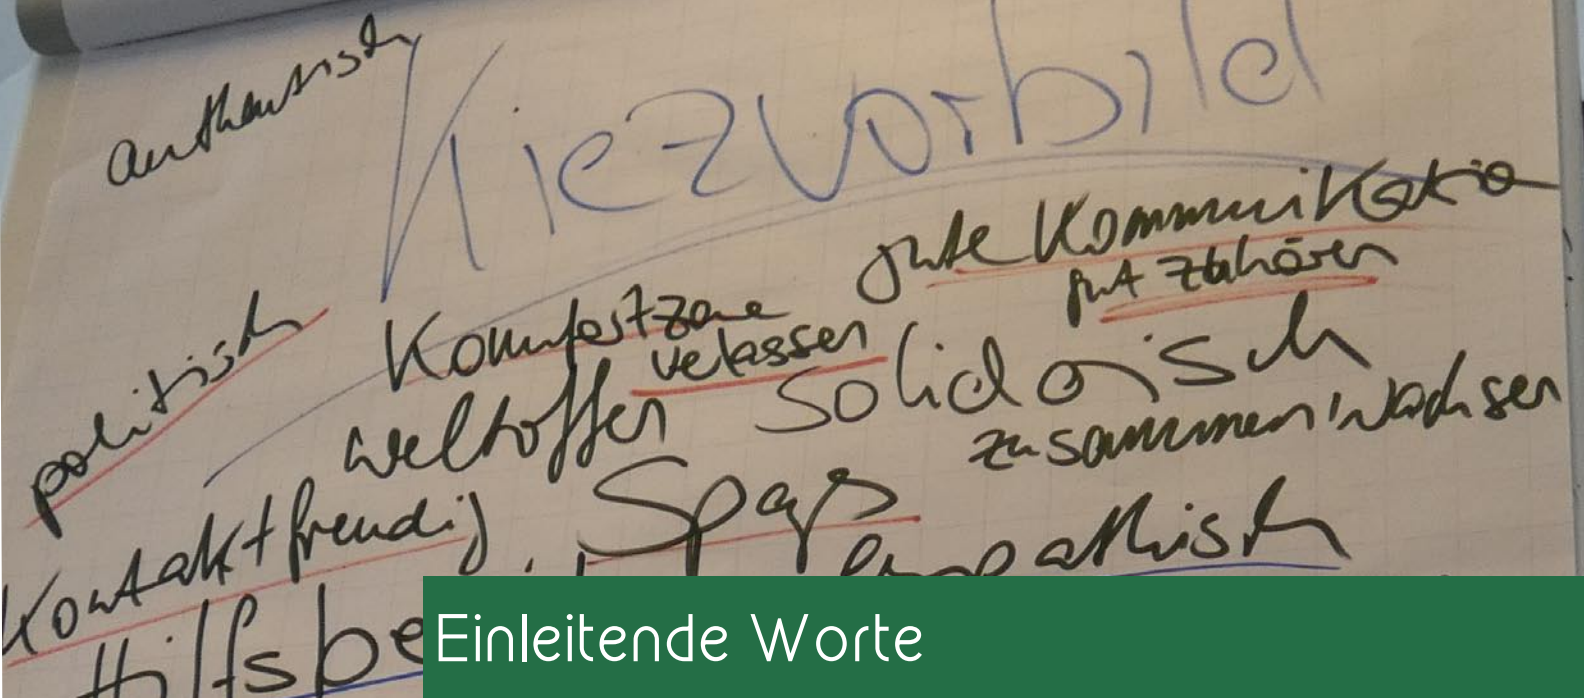 authentisch
Kiezvorbild
gute Kommunikatio
gut zuhören
politisch
Komfortzone
velassen
weltoffen
solidarisch
zusammen wachsen
Kontaktfreudig
Spaß
empathisch
Hilfsbe
Einleitende Worte